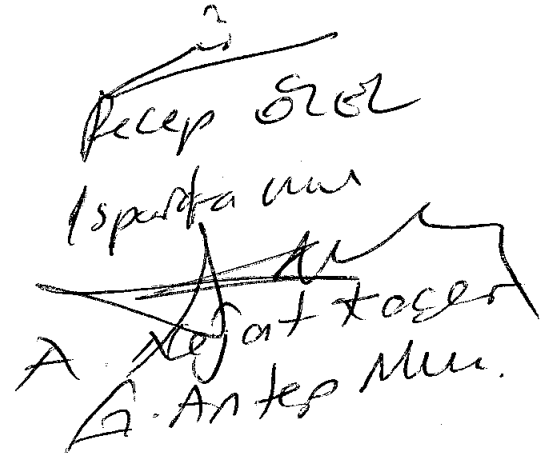 Recep ÖZEL
Isparta Mv
A. Nejat Koçer
G. Antep Mv.